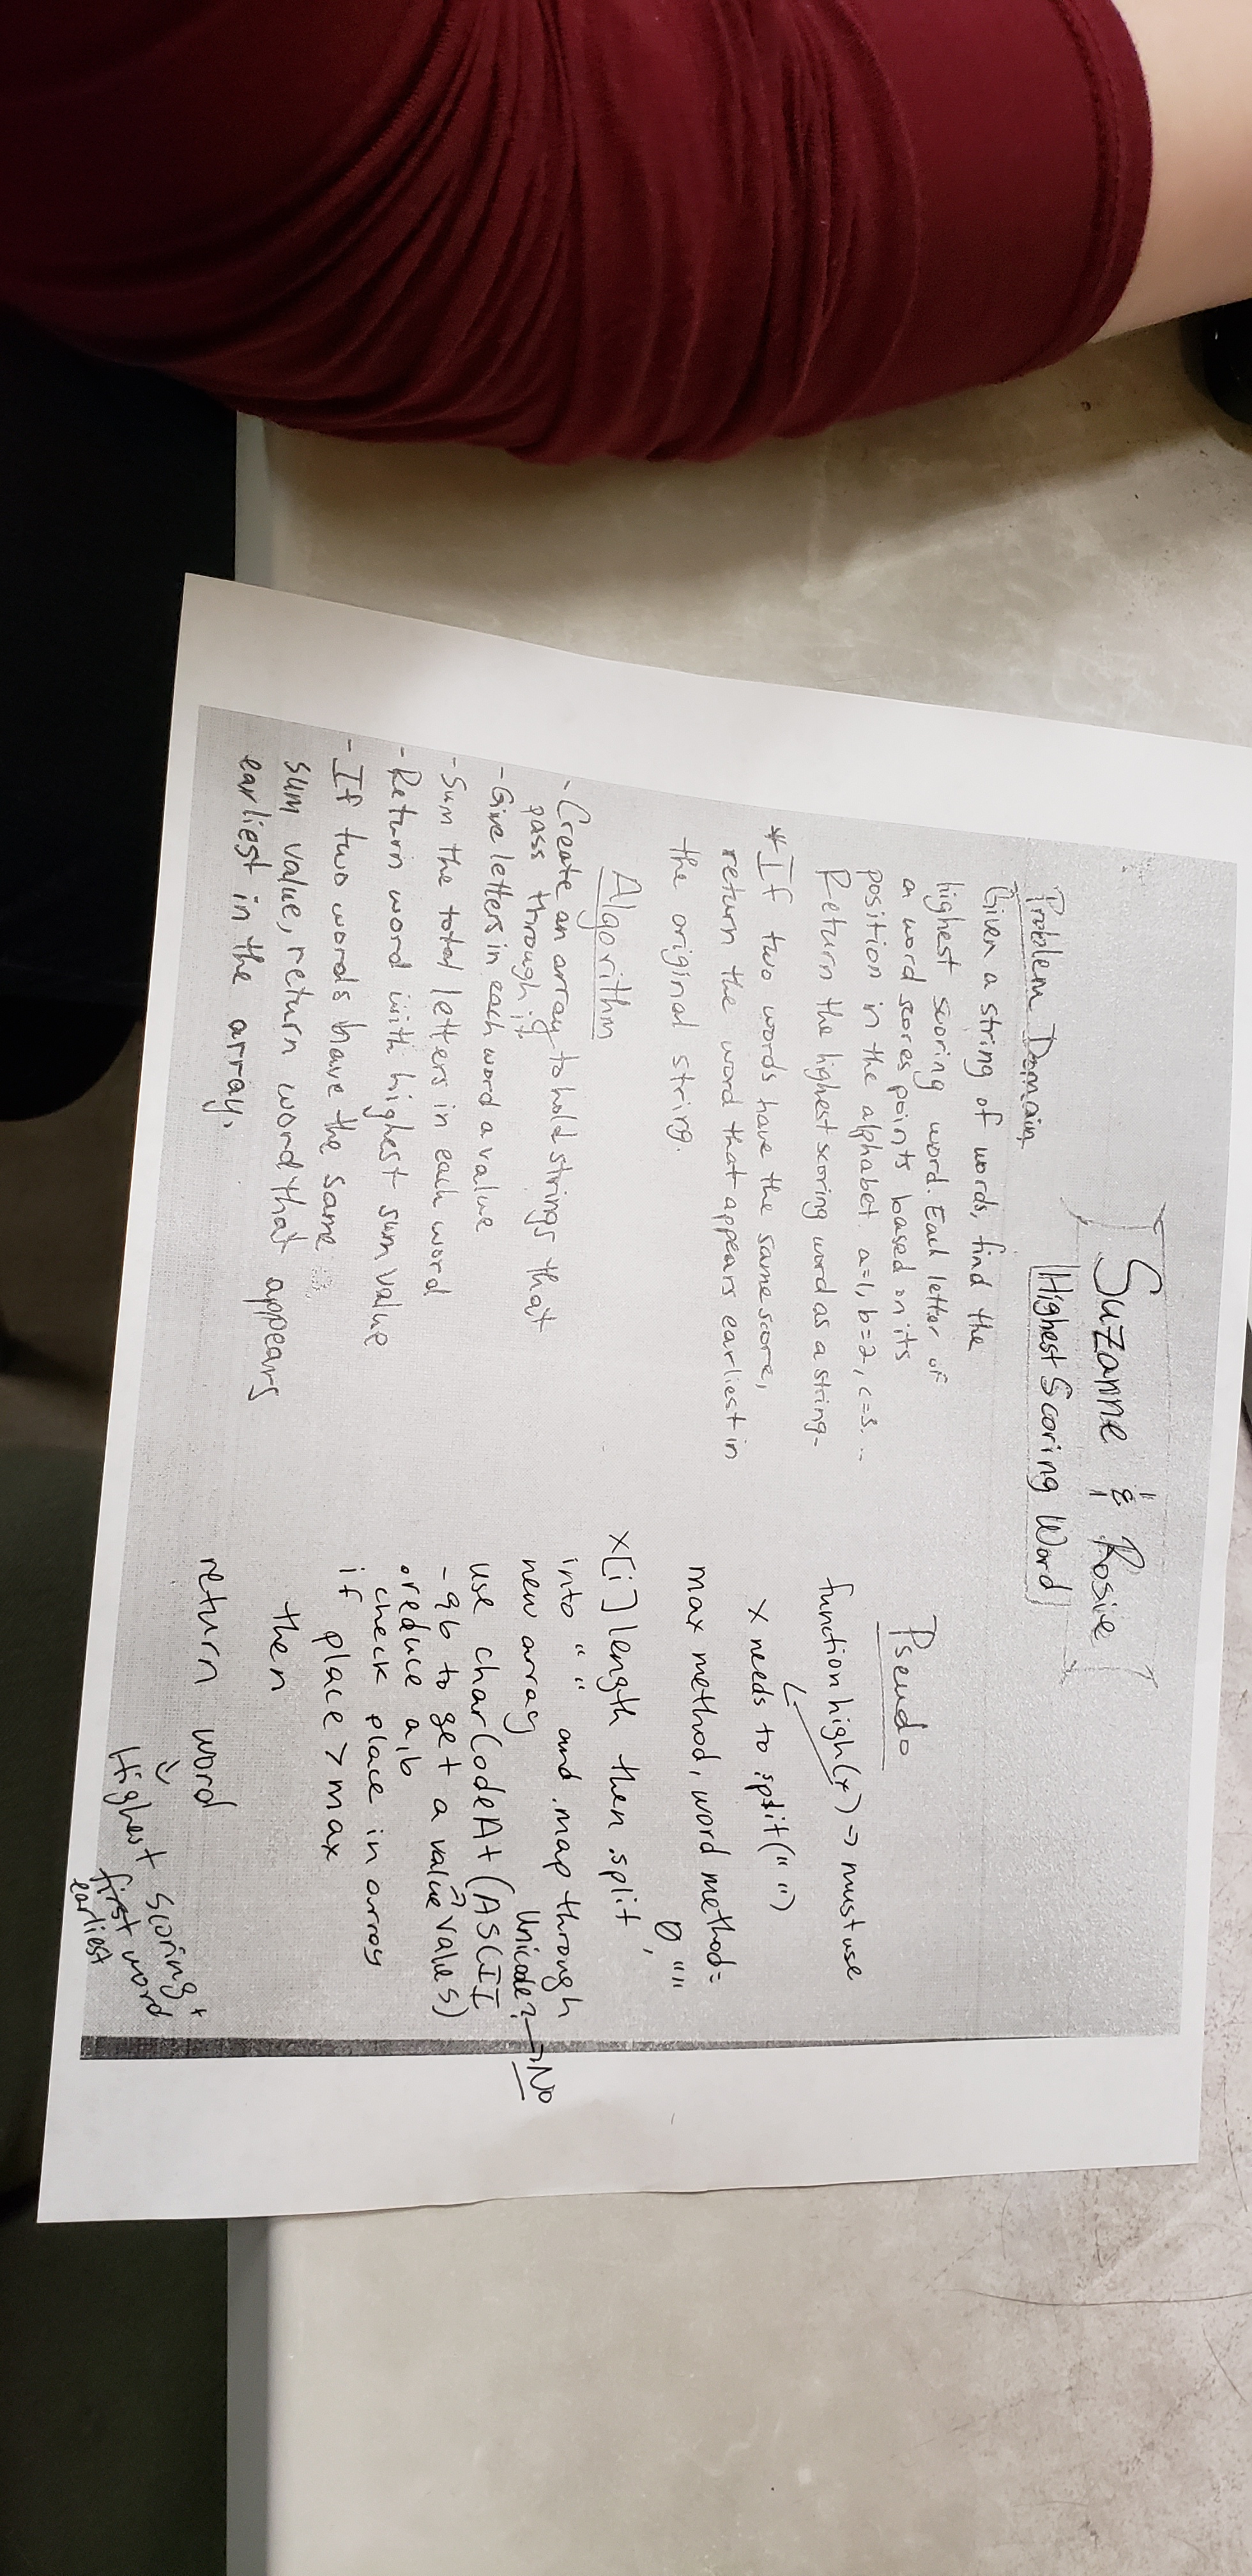 Suzanne & Rosie
Highest Scoring Word
Problem Domain
Given a string of words, find the
highest scoring word. Each letter of
a word scores points based on its
position in the alphabet a=1, b=2, c=3...
Return the highest scoring word as a string.
* If two words have the same score,
return the word that appears earliest in
the original string.
Algorithm
- Create an array to hold strings that
pass through it
- Give letters in each word a value
- Sum the total letters in each word
- Return word with highest sum value
- If two words have the same
sum value, return word that appears
earliest in the array.
Pseudo
function high(x) → must use
x needs to split(" ")
max method, word method =
0, ""
x[i] length then split
into " " and .map through
new array Unicode? → No
use charCodeAt (ASCII
- 96 to get a value values)
.reduce a,b
check place in array
if place > max
then
return word
Highest scoring +
first word
earliest